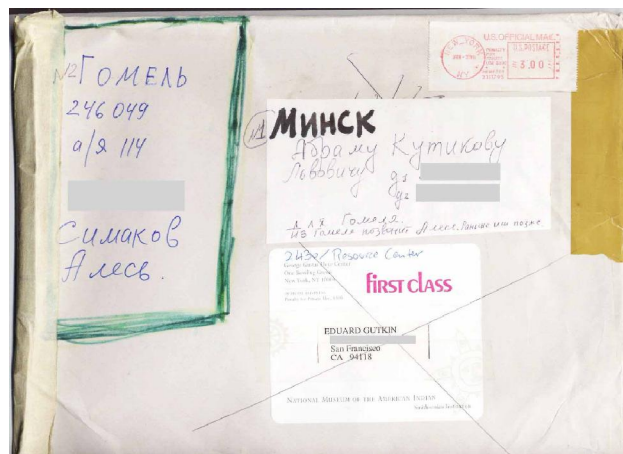 №2 Гомель
246 049
а/я 114
Симаков
Алесь.
U.S. OFFICIAL MAIL
U.S. POSTAGE
$3.00
№1 МИНСК
Абраму Кутикову
Львовичу
д3
д2
для Гомеля.
из Гомеля позвонит Алесь. Раньше или позже
2430/Resource Center
George Gustav Heye Center
One Bowling Green
New York, NY 10004
first class
EDUARD GUTKIN
San Francisco
CA 94118
NATIONAL MUSEUM OF THE AMERICAN INDIAN
Smithsonian Institution